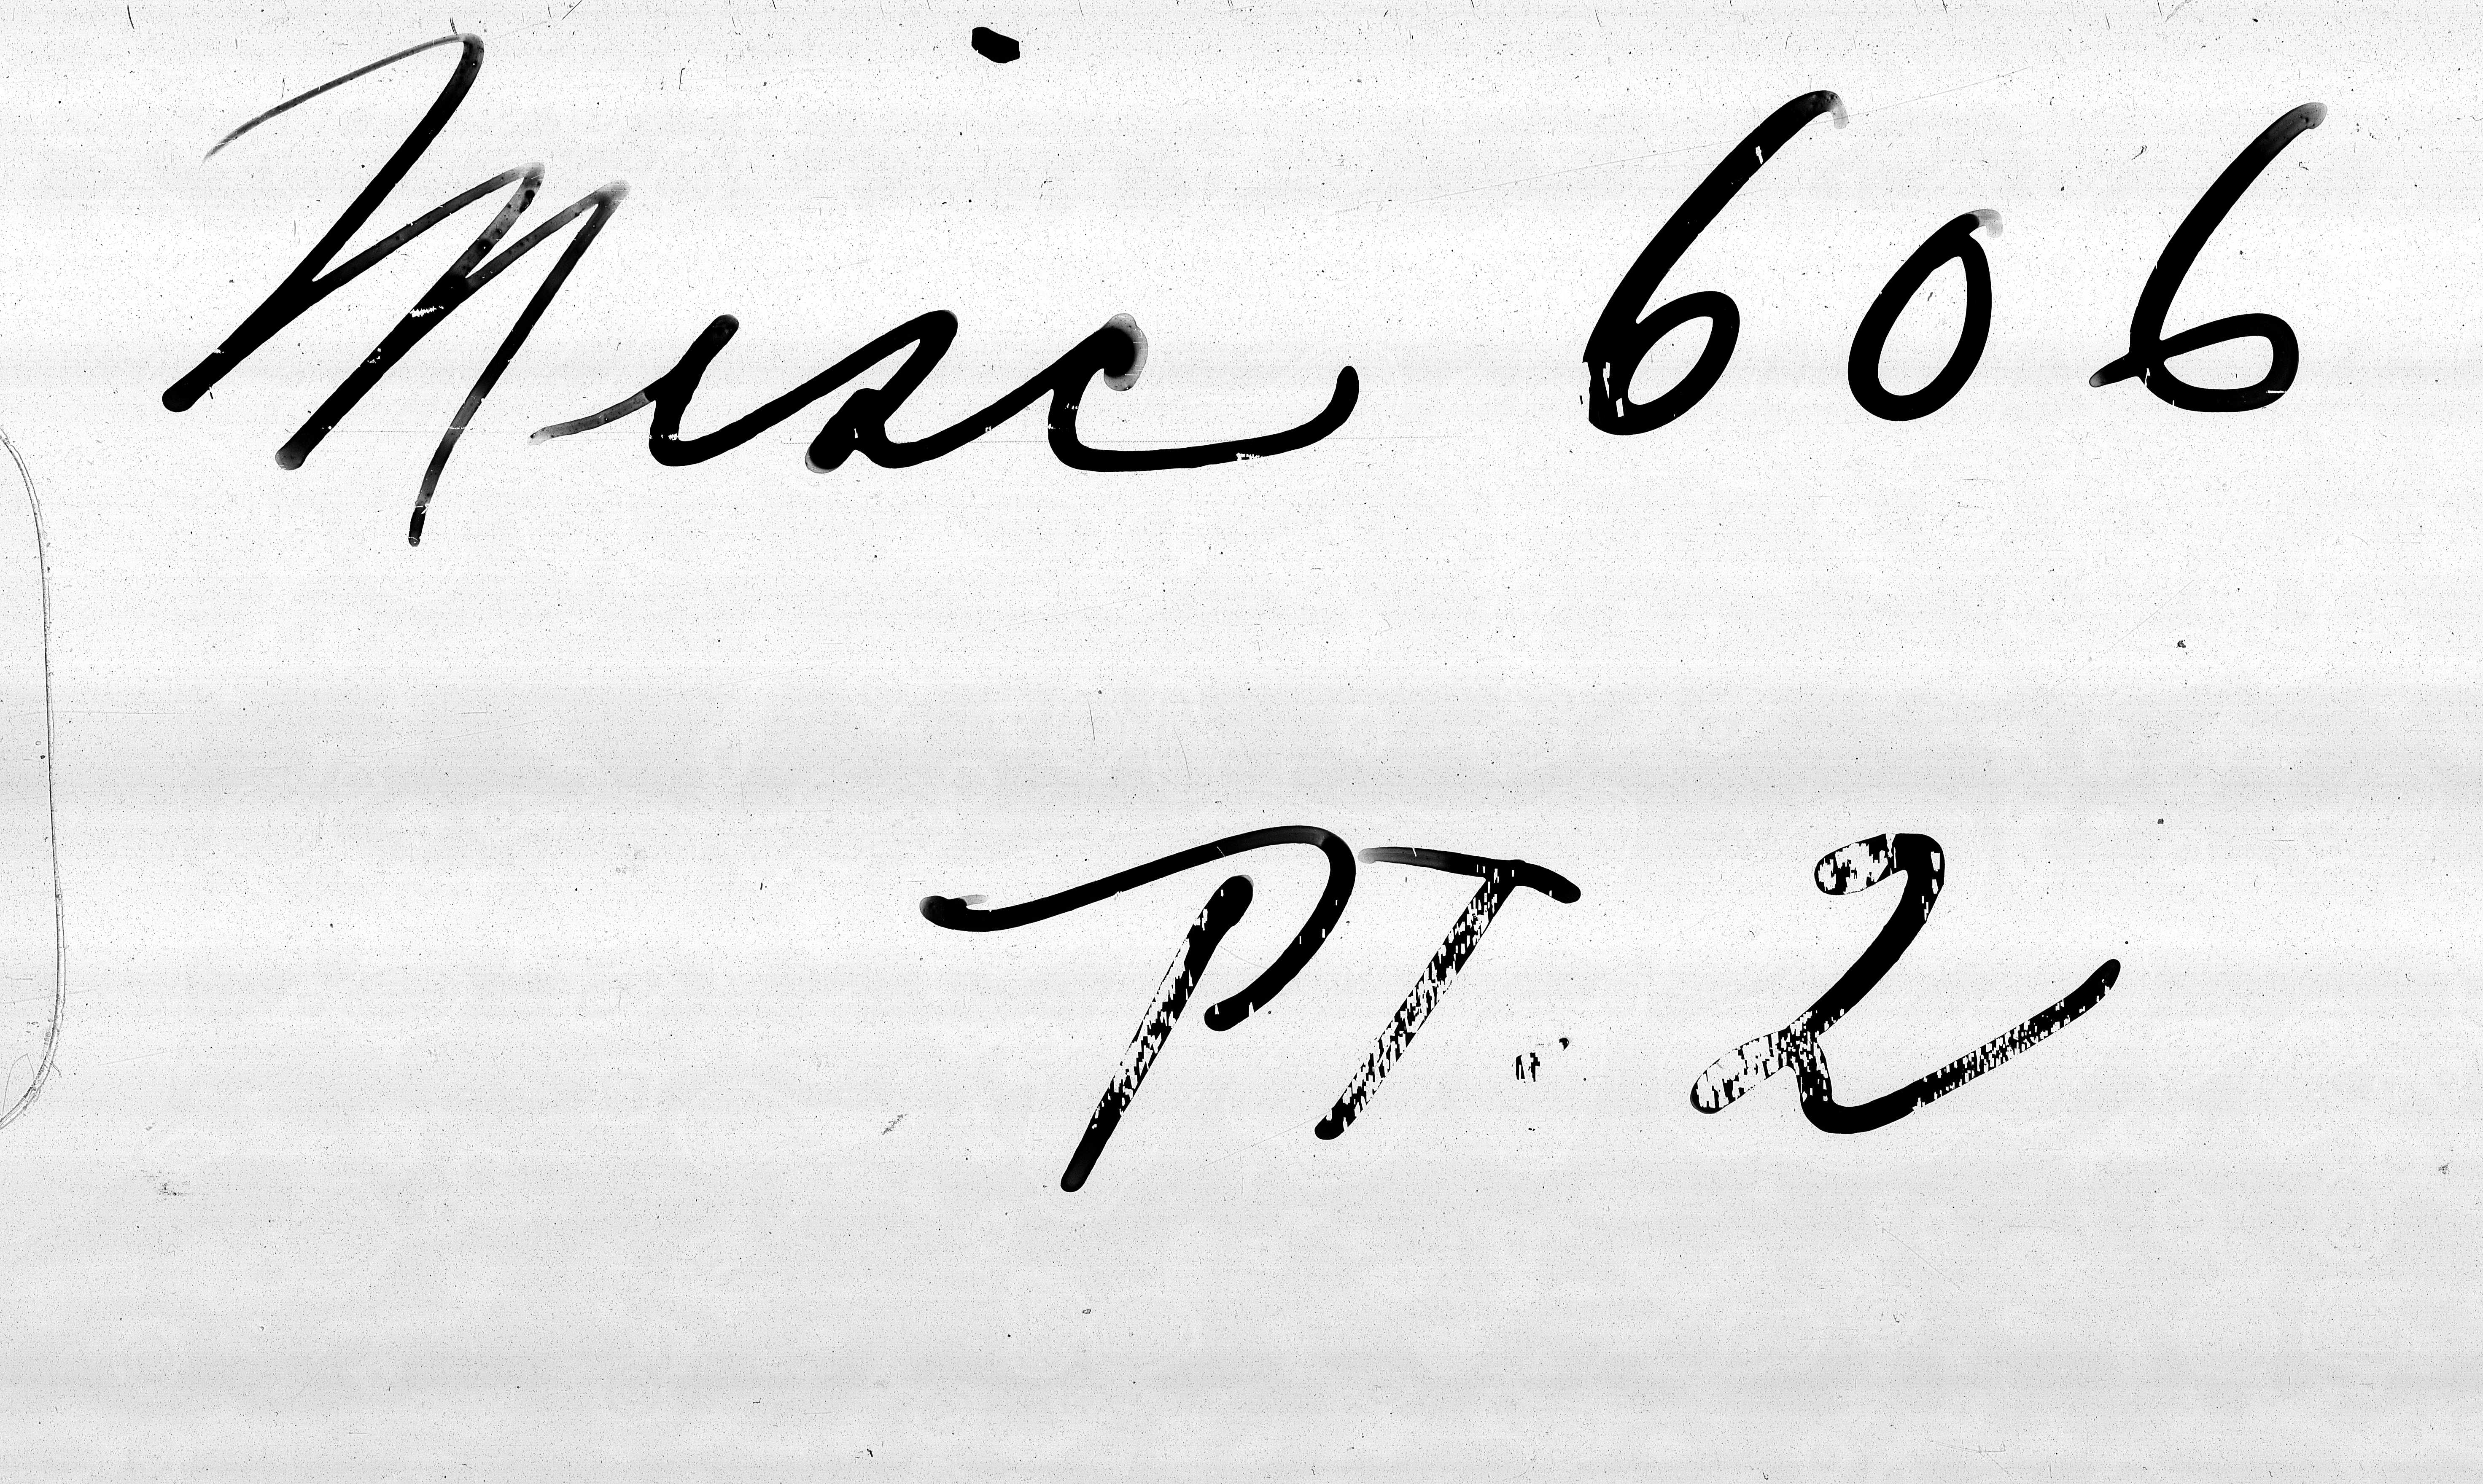 Misc 606
PT. 2